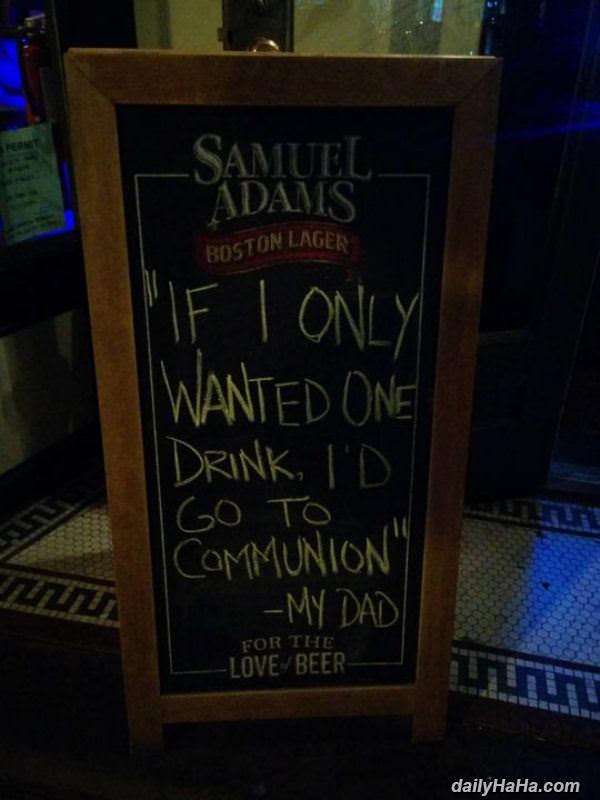 PERMIT
SAMUEL
ADAMS
BOSTON LAGER
"IF I ONLY
WANTED ONE
DRINK, I'D
GO TO
COMMUNION"
-MY DAD
FOR THE
LOVE of BEER
dailyHaHa.com